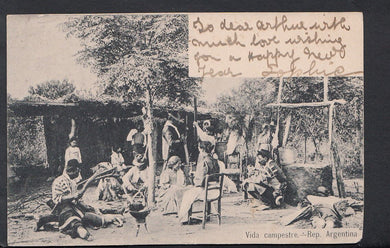 To dear Arthur with
much love wishing
for a Happy New
Year
Vida campestre. - Rep. Argentina